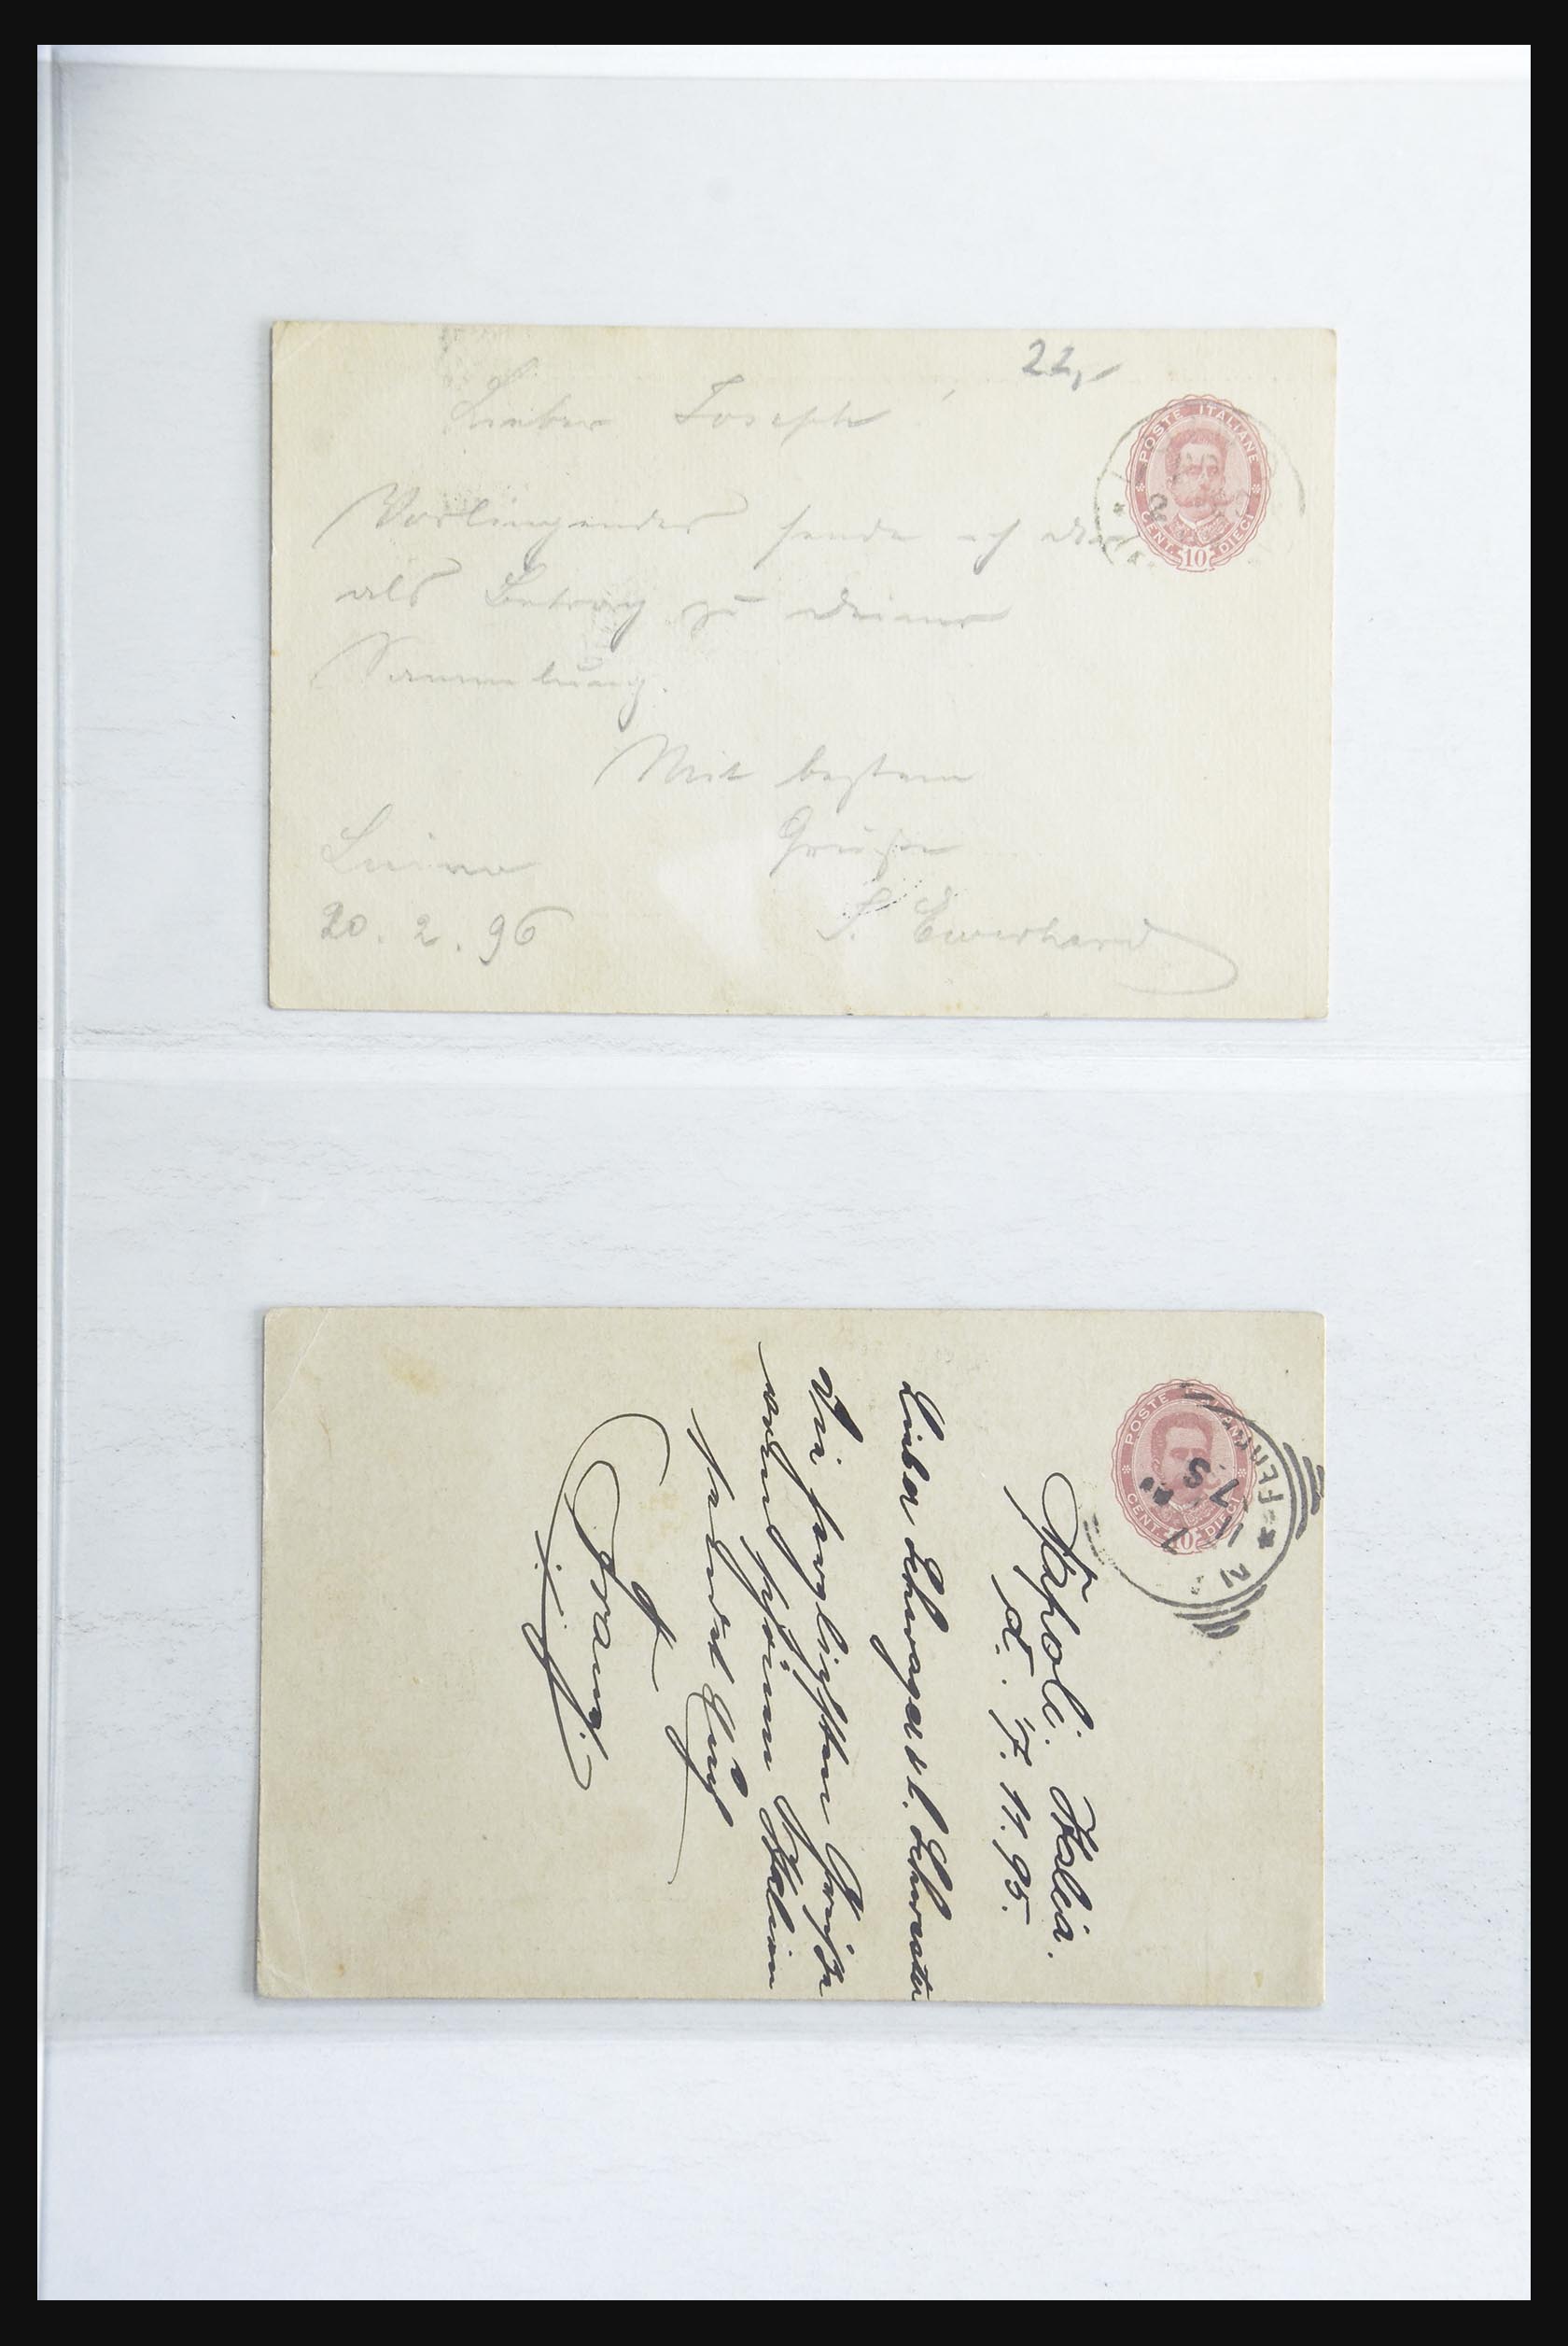 22,-
Lieber Joseph!
Vorliegendes sende ich dir
als Betrag zu deiner
Sammlung.
Mit bestem
Gruße
Luino
20. 2. 96
S. Ewerhard
POSTE ITALIANE
CENT. 10 DIECI
Napoli. Italia.
d. 7. 11. 95.
Lieber Schwager u. l. Schwester
Die herzlichsten Grüße
aus schönem Italien
sendet Euch
Franz
POSTE
CENT. 10 DIECI
FERR